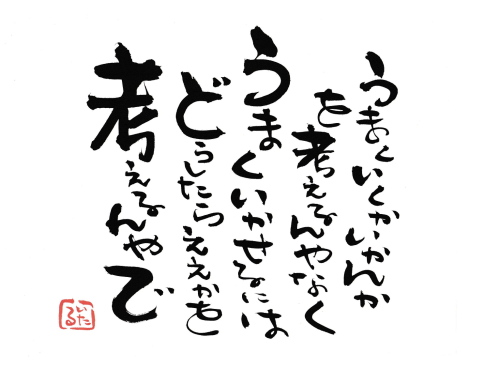 うまくいくかいかんか
を考えるんやなく
うまくいかせるには
どうしたらええかを
考えるんやで
いた
る